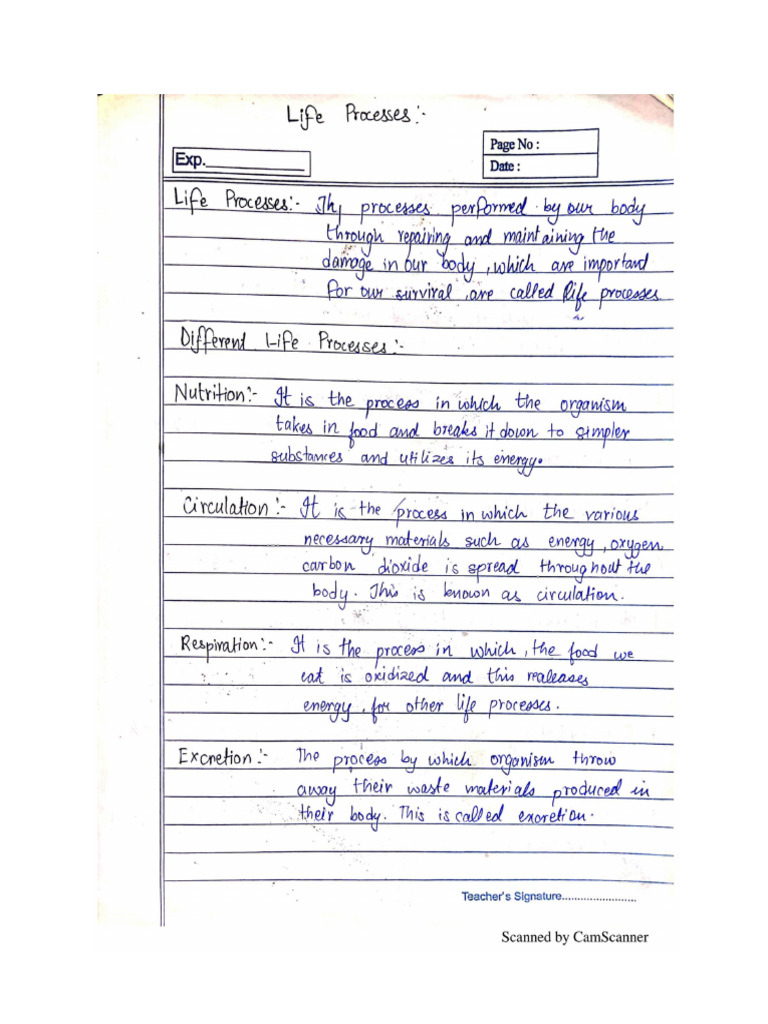 Life Processes:-
Page No :
Exp.
Date :
Life Processes:- Thy processes performed by our body
through repairing and maintaining the
damage in our body, which are important
for our survival, are called life processes
Different Life Processes:-
Nutrition:- It is the process in which the organism
takes in food and breaks it down to simpler
substances and utilizes its energy.
Circulation:- It is the process in which the various
necessary materials such as energy, oxygen
carbon dioxide is spread throughout the
body. This is known as circulation.
Respiration:- It is the process in which, the food we
eat is oxidized and this realeases
energy, for other life processes.
Excretion:- The process by which organism throw
away their waste materials produced in
their body. This is called excretion.
Teacher's Signature........................
Scanned by CamScanner